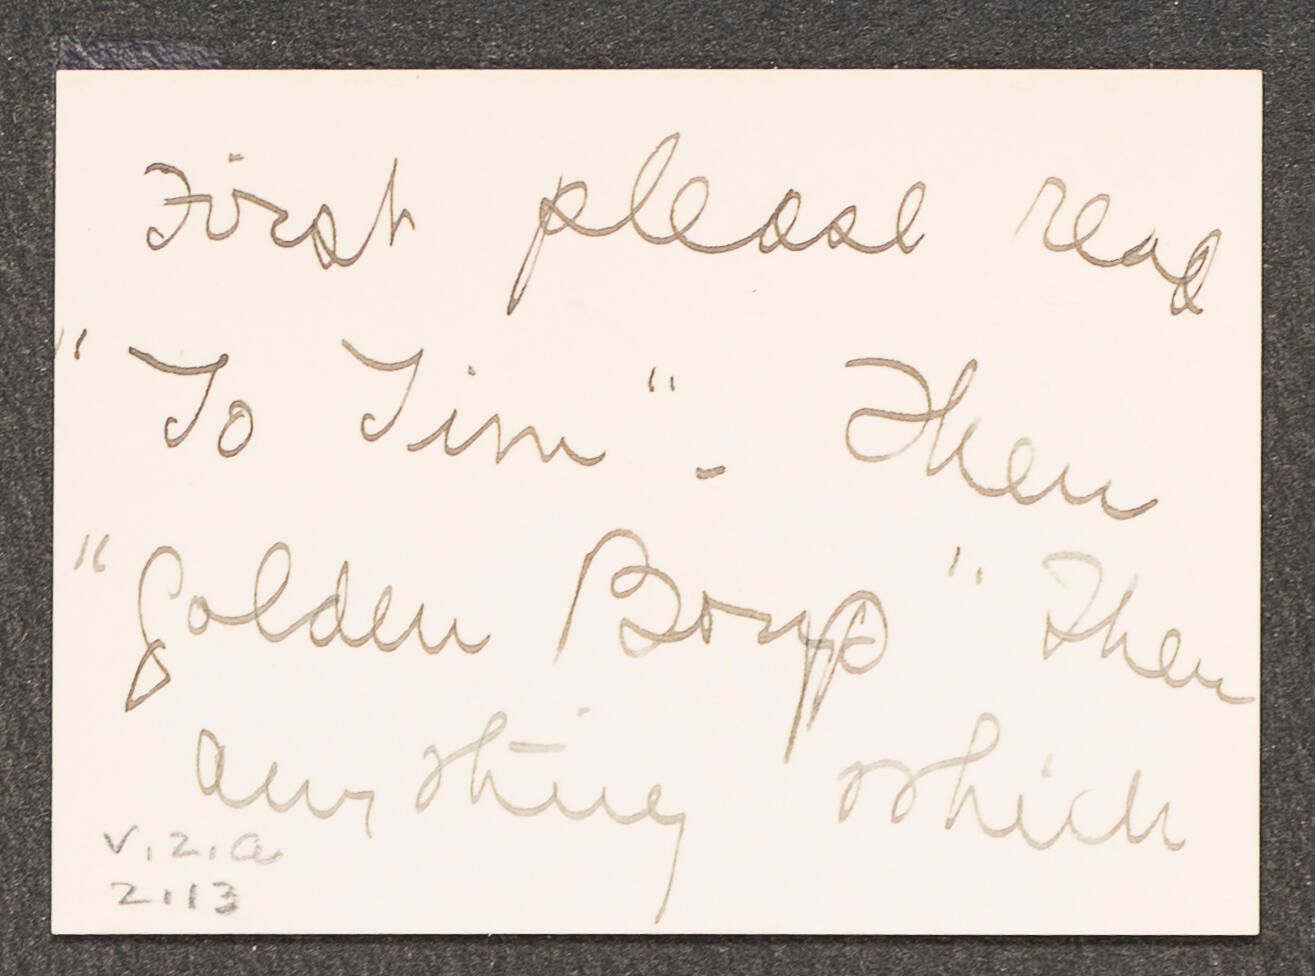 First please read
"To Tim" - Then
"Golden Boys" Then
any thing which
V.2.a
2.13